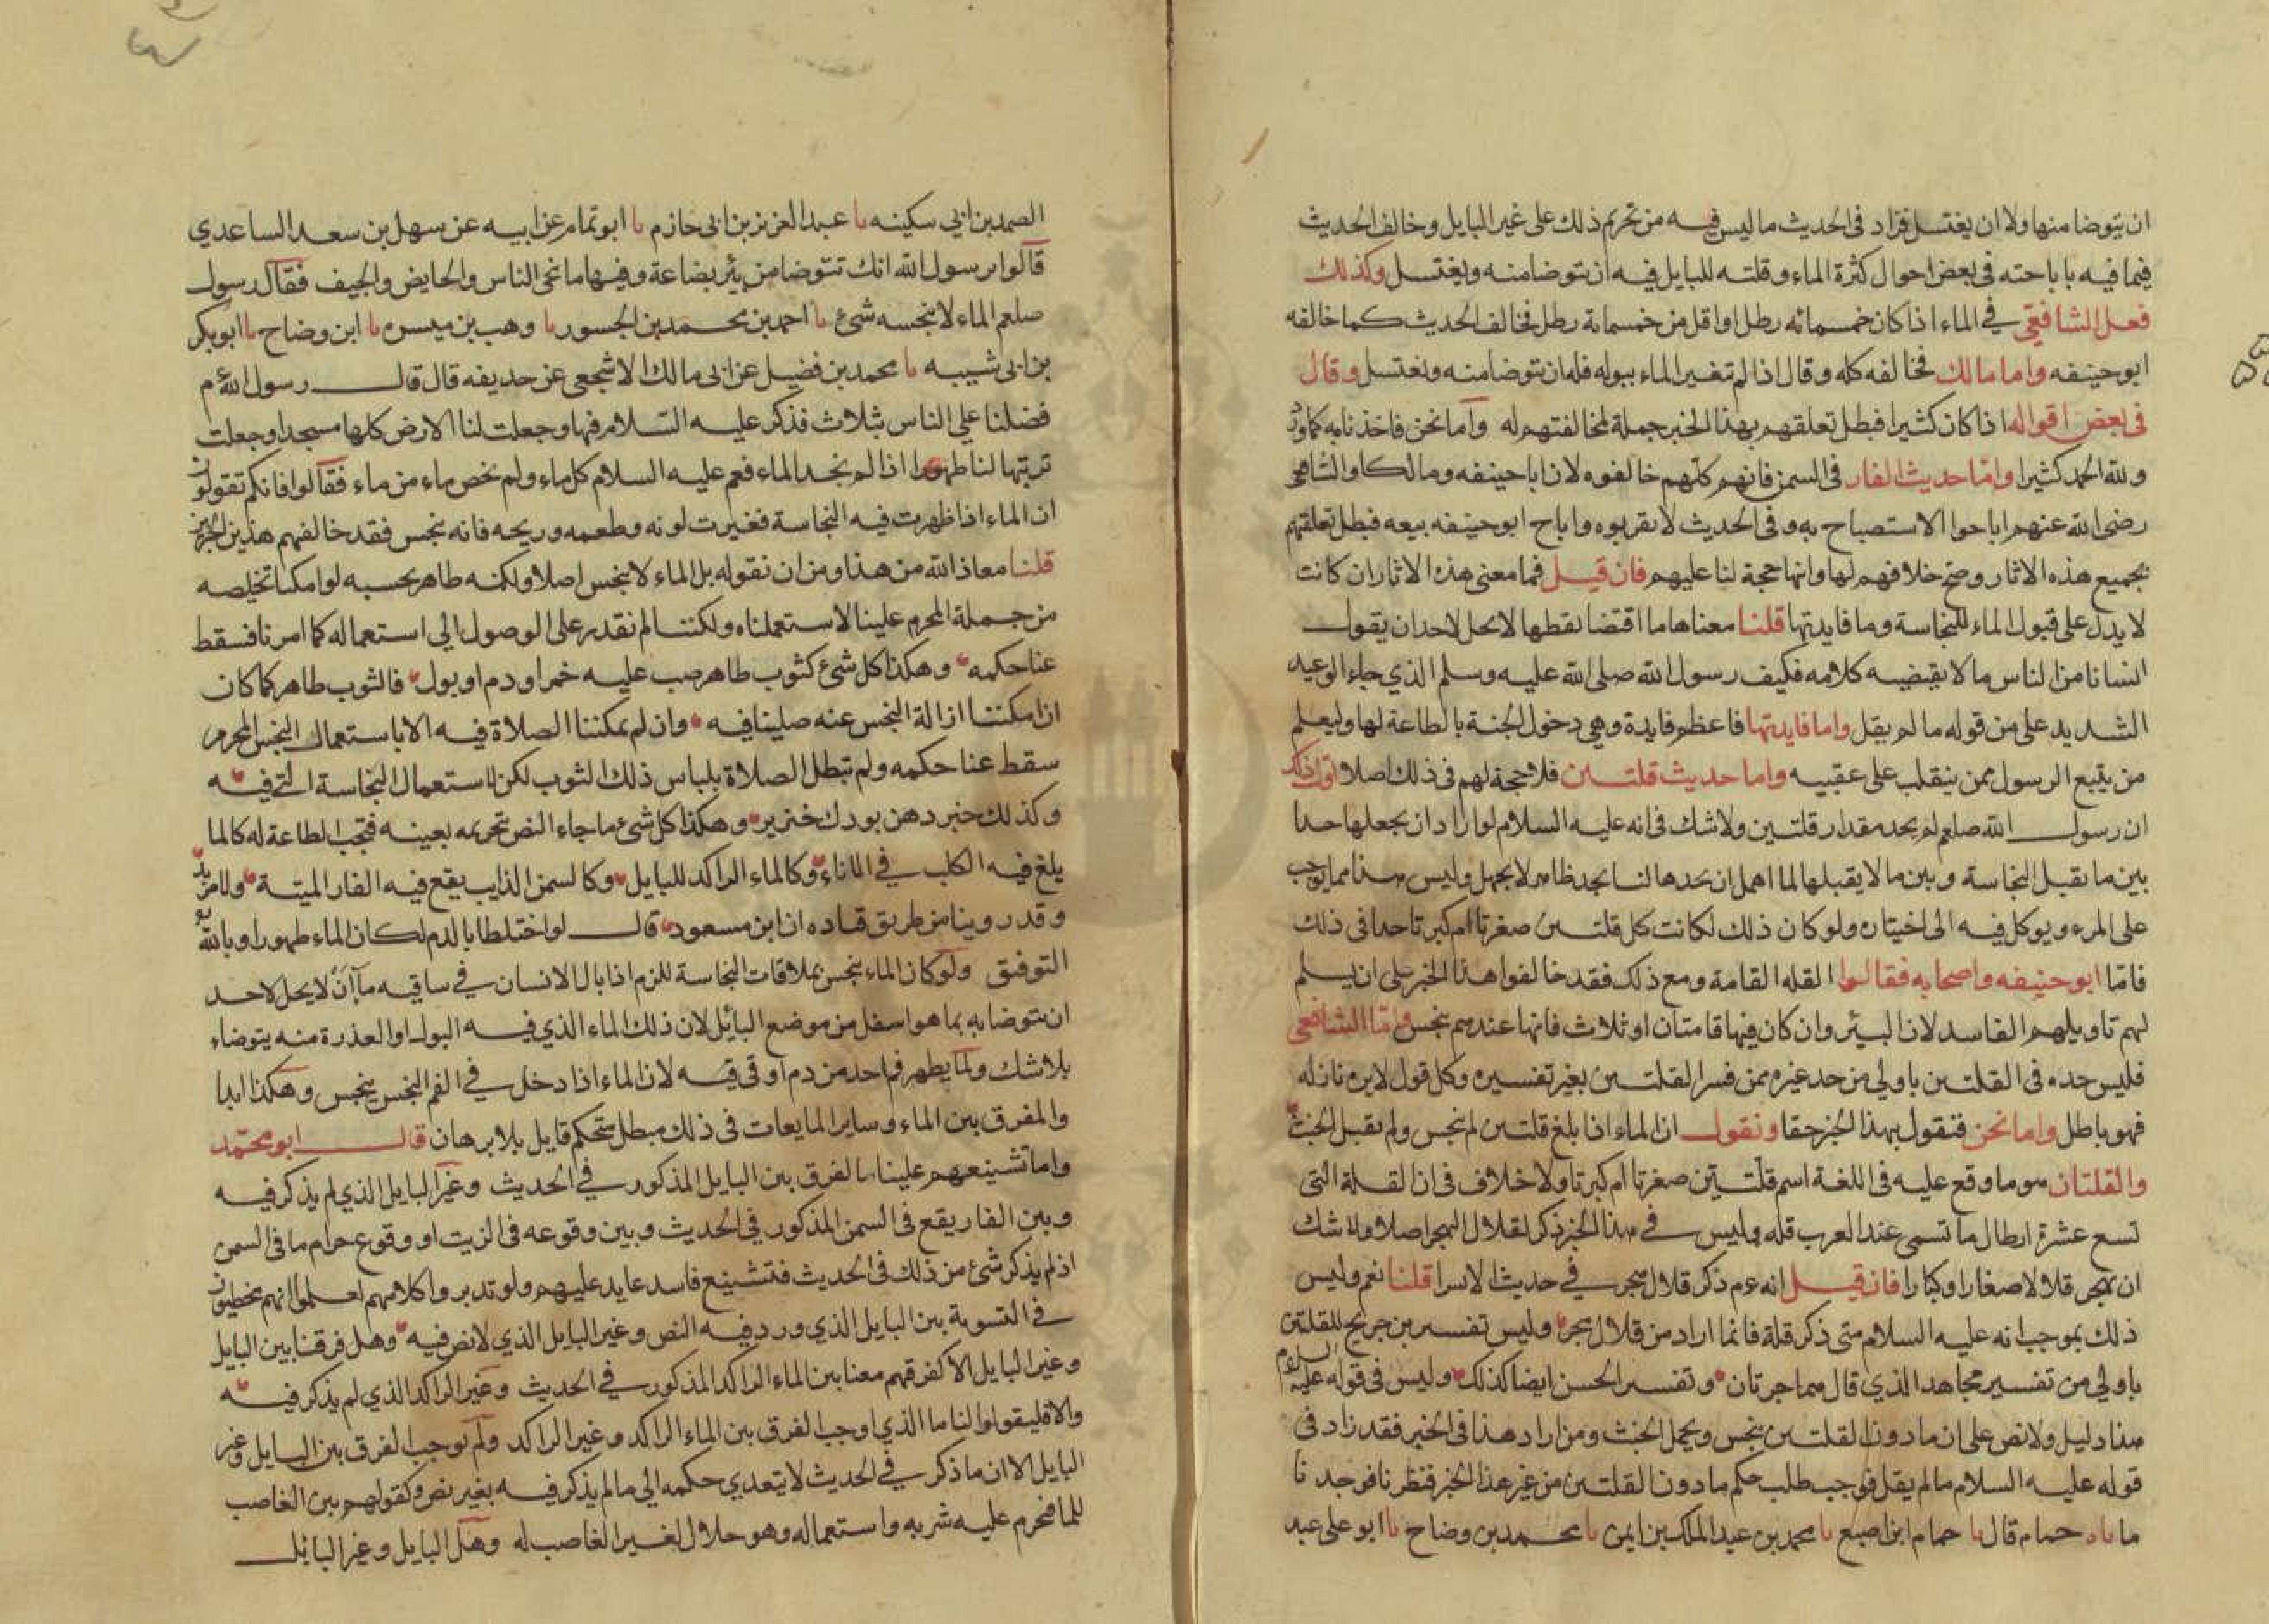 ان يتوضا منها ولا ان يغتسل فزاد فى الحديث ما ليس فيه من تحريم ذلك على غير البايل وخالف الحديث
فيما فيه باباحته فى بعض احوال كثرة الماء وقلته للبايل فيه ان يتوضا منه ويغتسل وكذلك
فعل الشافعي في الماء اذا كان خمسمائه رطل او اقل من خمسمائة رطل فخالف الحديث كما خالفه
ابو حنيفه واما مالك فخالفه كله وقال اذا لم تغير الماء ببوله فله ان يتوضا منه ويغتسل وقال
فى بعض اقواله اذا كان كثيرا فبطل تعلقهم بهذا الخبر جملة لمخالفتهم له واما نحن فاخذنا به كما ورد
ولله الحمد كثيرا وامّا حديث الفار فى السمن فانهم كلّهم خالفوه لان ابا حنيفه ومالكا والشافعى
رضى الله عنهم اباحوا الاستصباح به وفى الحديث لا تقربوه واباح ابو حنيفه بيعه فبطل تعلقهم
بجميع هذه الاثار وصح خلافهم لها وانها حجة لنا عليهم فان قيل فما معنى هذه الاثار ان كانت
لا يدل على قبول الماء للنجاسة وما فايدتها قلنا معناها ما اقتضا لفظها لا يحل لاحد ان يقول
انسانا من الناس ما لا يقتضيه كلامه فكيف رسول الله صلى الله عليه وسلم الذي جاء الوعيد
الشديد على من قوله ما لم يقل واما فايدتها فاعظم فايدة وهي دخول الجنة بالطاعة لها وليعلم
من يتبع الرسول ممن ينقلب على عقبيه واما حديث قلتين فلا حجة لهم فى ذلك اصلا اول ذلك
ان رسول الله صلعم لم يحد مقدار قلتين ولا شك فى انه عليه السلام لو اراد ان يجعلها حدا
بين ما يقبل النجاسة وبين ما لا يقبلها لما اهمل ان يحدها لنا بحد ظاهر لا يجهل وليس هذا مما يوجب
على المرء ويوكل فيه الى اختياره ولو كان ذلك لكانت كل قلتين صغرتا ام كبرتا حدا فى ذلك
فامّا ابو حنيفه واصحابه فقالوا القله القامة ومع ذلك فقد خالفوا هذا الخبر على ان يسلم
لهم تاويلهم الفاسد لان البئر وان كان فيها قامتان او ثلاث فانها عندهم بنجس وامّا الشافعى
فليس حده فى القلتين باولى من حد غيره ممن فسر القلتين بغير تفسيره وكل قول لا برهان له
فهو باطل واما نحن فنقول بهذا الخبر حقا ونقول ان الماء اذا بلغ قلتين لم ينجس ولم يقبل الخبث
والقلتان هو ما وقع عليه فى اللغة اسم قلّتين صغرتا ام كبرتا ولا خلاف فى ان القلة التى
تسع عشرة ارطال ما تسمى عند العرب قله وليس في هذا الخبر ذكر لقلال الهجر اصلا ولا شك
ان بهجر قلالا صغارا وكبارا فان قيل انه ءم ذكر قلال هجر في حديث الاسرا قلنا نعم وليس
ذلك بموجب انه عليه السلام متى ذكر قلة فانما اراد من قلال هجر وليس تفسير بن جريج للقلتين
باولى من تفسير مجاهد الذي قال هما جرتان وتفسير الحسن ايضا كذلك وليس فى قوله عليه السلام
هذا دليل ولا نص على ان ما دون القلتين ينجس ويحمل الخبث ومن اراد هذا فى الخبر فقد زاد فى
قوله عليه السلام ما لم يقل فوجب طلب حكم ما دون القلتين من غير هذا الخبر فنظرنا فوجدنا
ما ناه حمام قال نا حمام ابن اصبع نا محمد بن عبد الملك بن ايمن نا محمد بن وضاح نا ابو على عبد
الصمد بن ابي سكينه نا عبد العزيز بن ابى حازم نا ابو تمام عن ابيه عن سهل بن سعد الساعدي
قالوا يرسول الله انك تتوضا من بئر بضاعة وفيها ما ننجى الناس والحايض والجيف فقال رسول
صلعم الماء لا ينجسه شئ نا احمد بن محمد بن الجسور نا وهب بن ميسره نا ابن وضاح نا ابو بكر
بن ابى شيبه نا محمد بن فضيل عن ابى مالك الاشجعى عن حديفه قال قال رسول الله ءم
فضلنا على الناس بثلاث فذكر عليه السّلام فيها وجعلت لنا الارض كلها مسجدا وجعلت
تربتها لنا طهورا اذا لم نجد الماء فعم عليه السلام كل ماء ولم نخص ماء من ماء فقالوا فانكم تقولون
ان الماء اذا ظهرت فيه النجاسة فغيرت لونه وطعمه وريحه فانه بنجس فقد خالفهم هذين الخبرين
قلنا معاذ الله من هذا ومن ان نقوله بل الماء لا ينجس اصلا ولكنه طاهر بحسبه لو امكنا تخليصه
من جملة المحرم علينا لاستعملناه ولكننا لم نقدر على الوصول الى استعماله كما امرنا فسقط
عنا حكمه وهكذا كل شئ كثوب طاهر صب عليه خمر او دم او بول فالثوب طاهر كما كان
ان امكننا ازالة النجس عنه صلينا فيه وان لم يمكننا الصلاة فيه الا باستعمال النجس المحرم
سقط عنا حكمه ولم تبطل الصلاة بلباس ذلك الثوب لكن لاستعمال النجاسة التى فيه
وكذلك خبز دهن بودك خنزير وهكذا كل شئ ما جاء النص بتحريمه بعينه فتجب الطاعة له كالما
يلغ فيه الكلب في الاناء وكالماء الراكد للبايل وكالسمن الذايب يقع فيه الفار الميتة ولا مزيد
وقد روينا من طريق قتاده ان ابن مسعود قال لو اختلطا بالدم لكان الماء طهورا وبالله
التوفيق ولو كان الماء ينجس بملاقات النجاسة للزم اذا بال الانسان في ساقيه ما ان لا يحل لاحد
ان يتوضا به بما هو اسفل من موضع البائل لان ذلك الماء الذي فيه البول او العذرة منه يتوضاء
بلا شك ولما يطهر فم احد من دم او قى قيه لان الماء اذا دخل في الفم النجس ينجس وهكذا ابدا
والمفرق بين الماء وساير المايعات فى ذلك مبطل متحكم قايل بلا برهان قال ابو محمّد
واما تشنيعهم علينا بالفرق بين البايل المذكور في الحديث وغير البايل الذي لم يذكر فيه
وبين الفار يقع فى السمن المذكور في الحديث وبين وقوعه فى الزيت او وقوع حرام ما فى السمن
اذ لم يذكر شئ من ذلك فى الحديث فتشنيع فاسد عايد عليهم ولو تدبروا كلامهم لعلموا انهم مخطيون
في التسوية بين البايل الذي ورد فيه النص وغير البايل الذي لا نص فيه وهل فرقنا بين البايل
وغير البايل الا كفرقهم معنا بين الماء الراكد المذكور في الحديث وغير الراكد الذي لم يذكر فيه
والا فليقولوا لنا ما الذي اوجب الفرق بين الماء الراكد وغير الراكد ولم يوجب الفرق بين البايل وغير
البايل الا ان ما ذكر في الحديث لا يتعدي حكمه الى ما لم يذكر فيه بغير نص وكقولهم بين الغاصب
للما فحرم عليه شربه واستعماله وهو حلال لغير الغاصب له وهل البايل وغير البايل